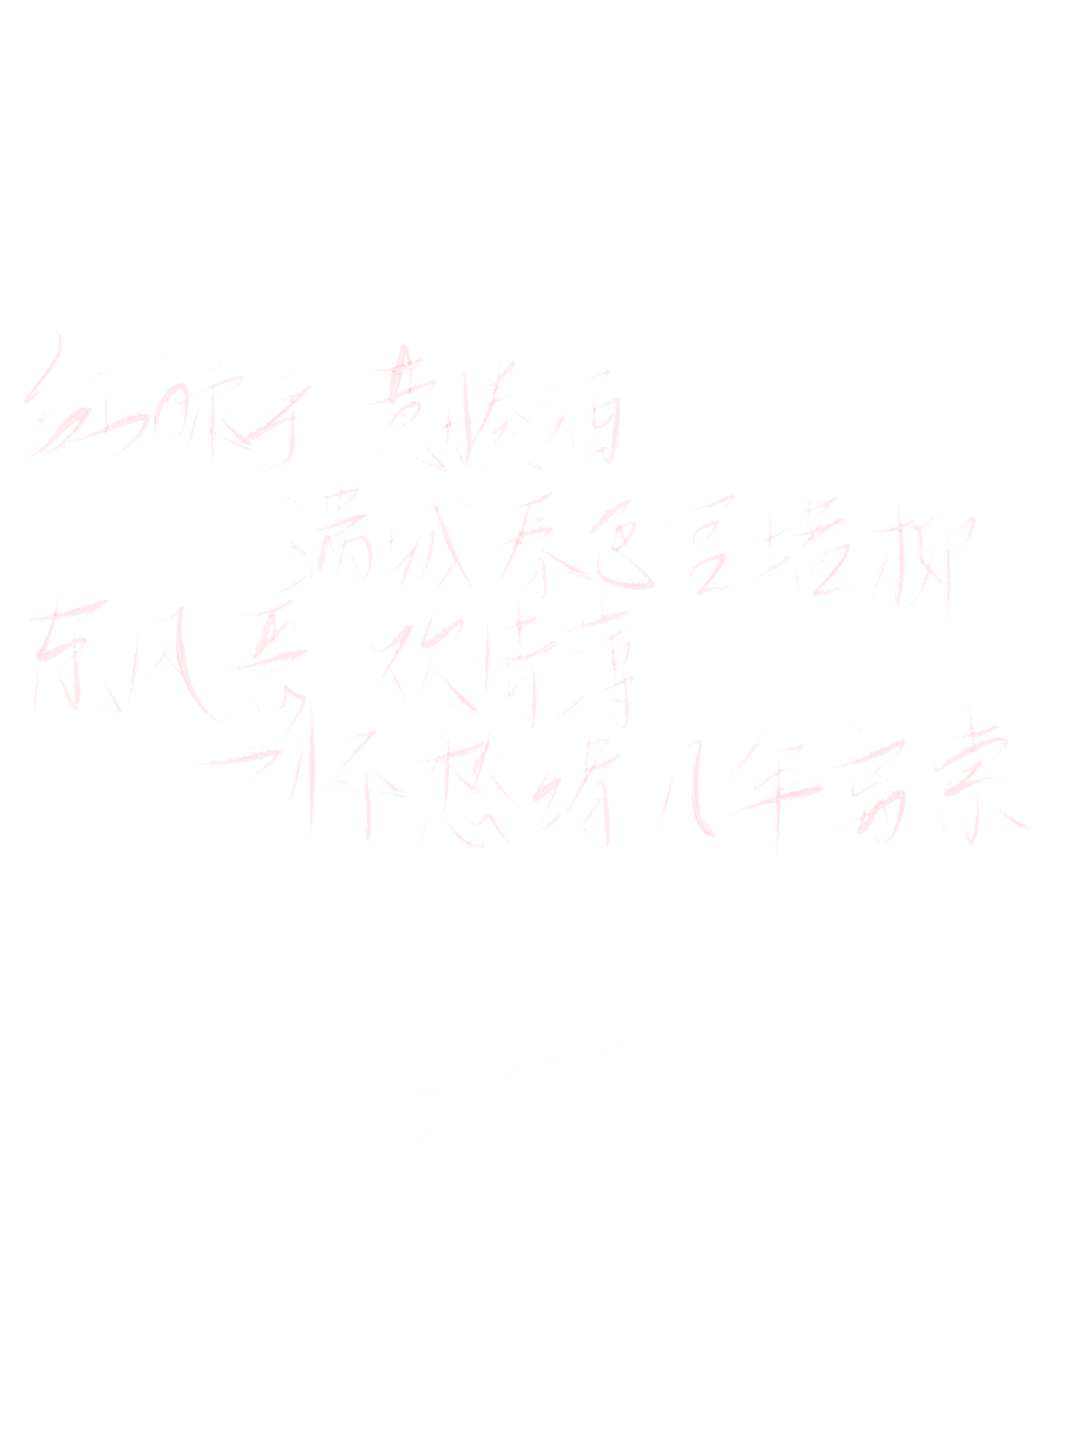 红酥手 黄縢酒
满城春色宫墙柳
东风恶 欢情薄
一怀愁绪 几年离索